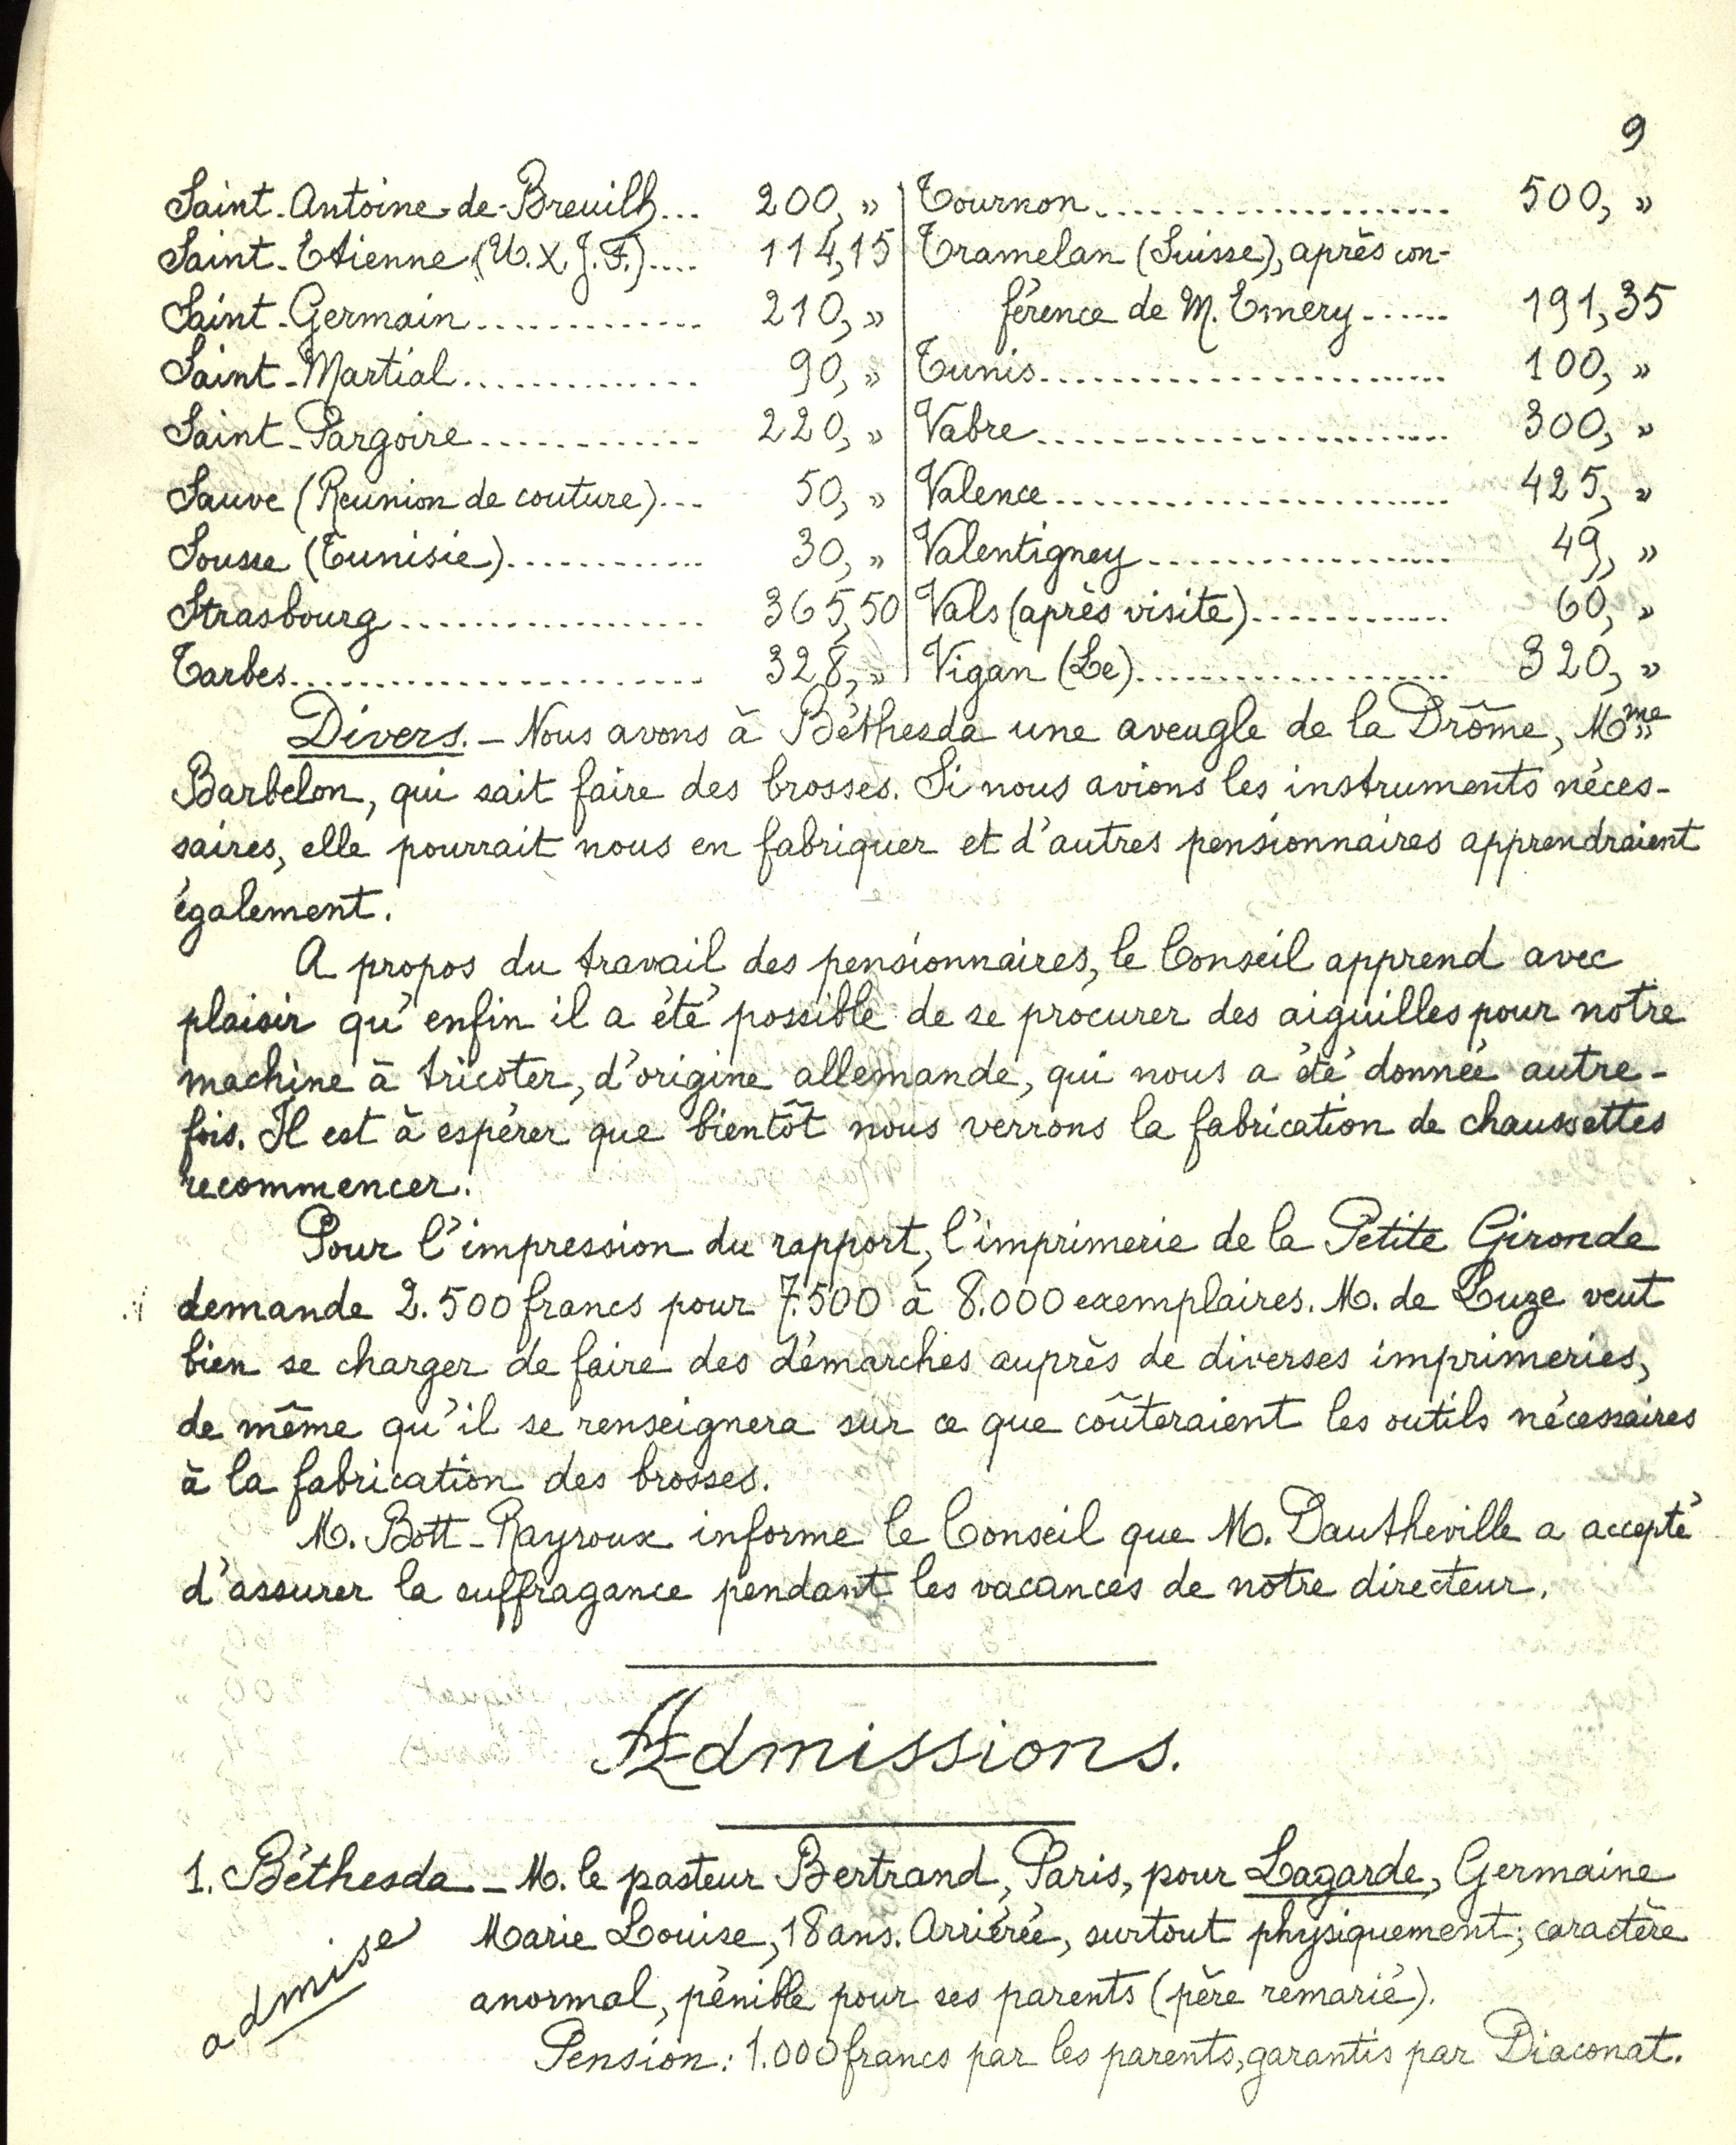 9
Saint-Antoine-de-Breuilh... 200, »
Saint-Etienne (U.X.J.F.).... 114,15
Saint-Germain............. 210, »
Saint-Martial.............. 90, »
Saint-Pargoire............ 220, »
Sauve (Reunion de couture)... 50, »
Sousse (Tunisie)............ 30, »
Strasbourg.................. 365,50
Tarbes........................ 328, »
Tournon...................... 500, »
Tramelan (Suisse), après con-
férence de M. Emery...... 191,35
Tunis........................ 100, »
Vabre........................ 300, »
Valence....................... 425, »
Valentigney.................. 49, »
Vals (après visite)............ 60, »
Vigan (Le)................... 320, »
Divers. – Nous avons à Béthesda une aveugle de la Drôme, Mme
Barbelon, qui sait faire des brosses. Si nous avions les instruments néces-
saires, elle pourrait nous en fabriquer et d'autres pensionnaires apprendraient
également.
A propos du travail des pensionnaires, le Conseil apprend avec
plaisir qu'enfin il a été possible de se procurer des aiguilles pour notre
machine à tricoter, d'origine allemande, qui nous a été donnée autre-
fois. Il est à espérer que bientôt nous verrons la fabrication de chaussettes
recommencer.
Pour l'impression du rapport, l'imprimerie de la Petite Gironde
demande 2.500 francs pour 7.500 à 8.000 exemplaires. M. de Luze veut
bien se charger de faire des démarches auprès de diverses imprimeries,
de même qu'il se renseignera sur ce que coûteraient les outils nécessaires
à la fabrication des brosses.
M. Bott-Rayroux informe le Conseil que M. Dautheville a accepté
d'assurer la suffragance pendant les vacances de notre directeur.
Admissions.
1. Béthesda – M. le pasteur Bertrand, Paris, pour Lagarde, Germaine
Marie Louise, 18 ans. Arriérée, surtout physiquement; caractère
anormal, pénible pour ses parents (père remarié).
admise
Pension: 1.000 francs par les parents, garantis par Diaconat.